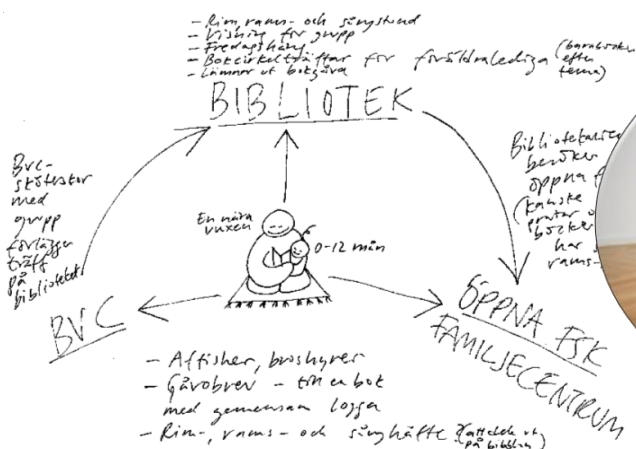 - Rim, rams- och sångstund
- Visning för grupp
- Fredagshäng
- Bokcirkelträffar för föräldralediga (barnböcker efter tema)
- Lämnar ut bokgåva
BIBLIOTEK
Bvc-
sköterskor
med
grupp
förlägger
träff
på
biblioteket
En nära
vuxen
0-12 mån
Bibliotekarien
besöker
öppna f
(kanske
pratar
böcker
har
rams-
BVC
ÖPPNA FSK
FAMILJECENTRUM
- Affisher, broshyrer
- Gåvobrev - till en bok
med gemensam logga
- Rim-, rams- och sånghäfte (att dela ut
på bibblan)